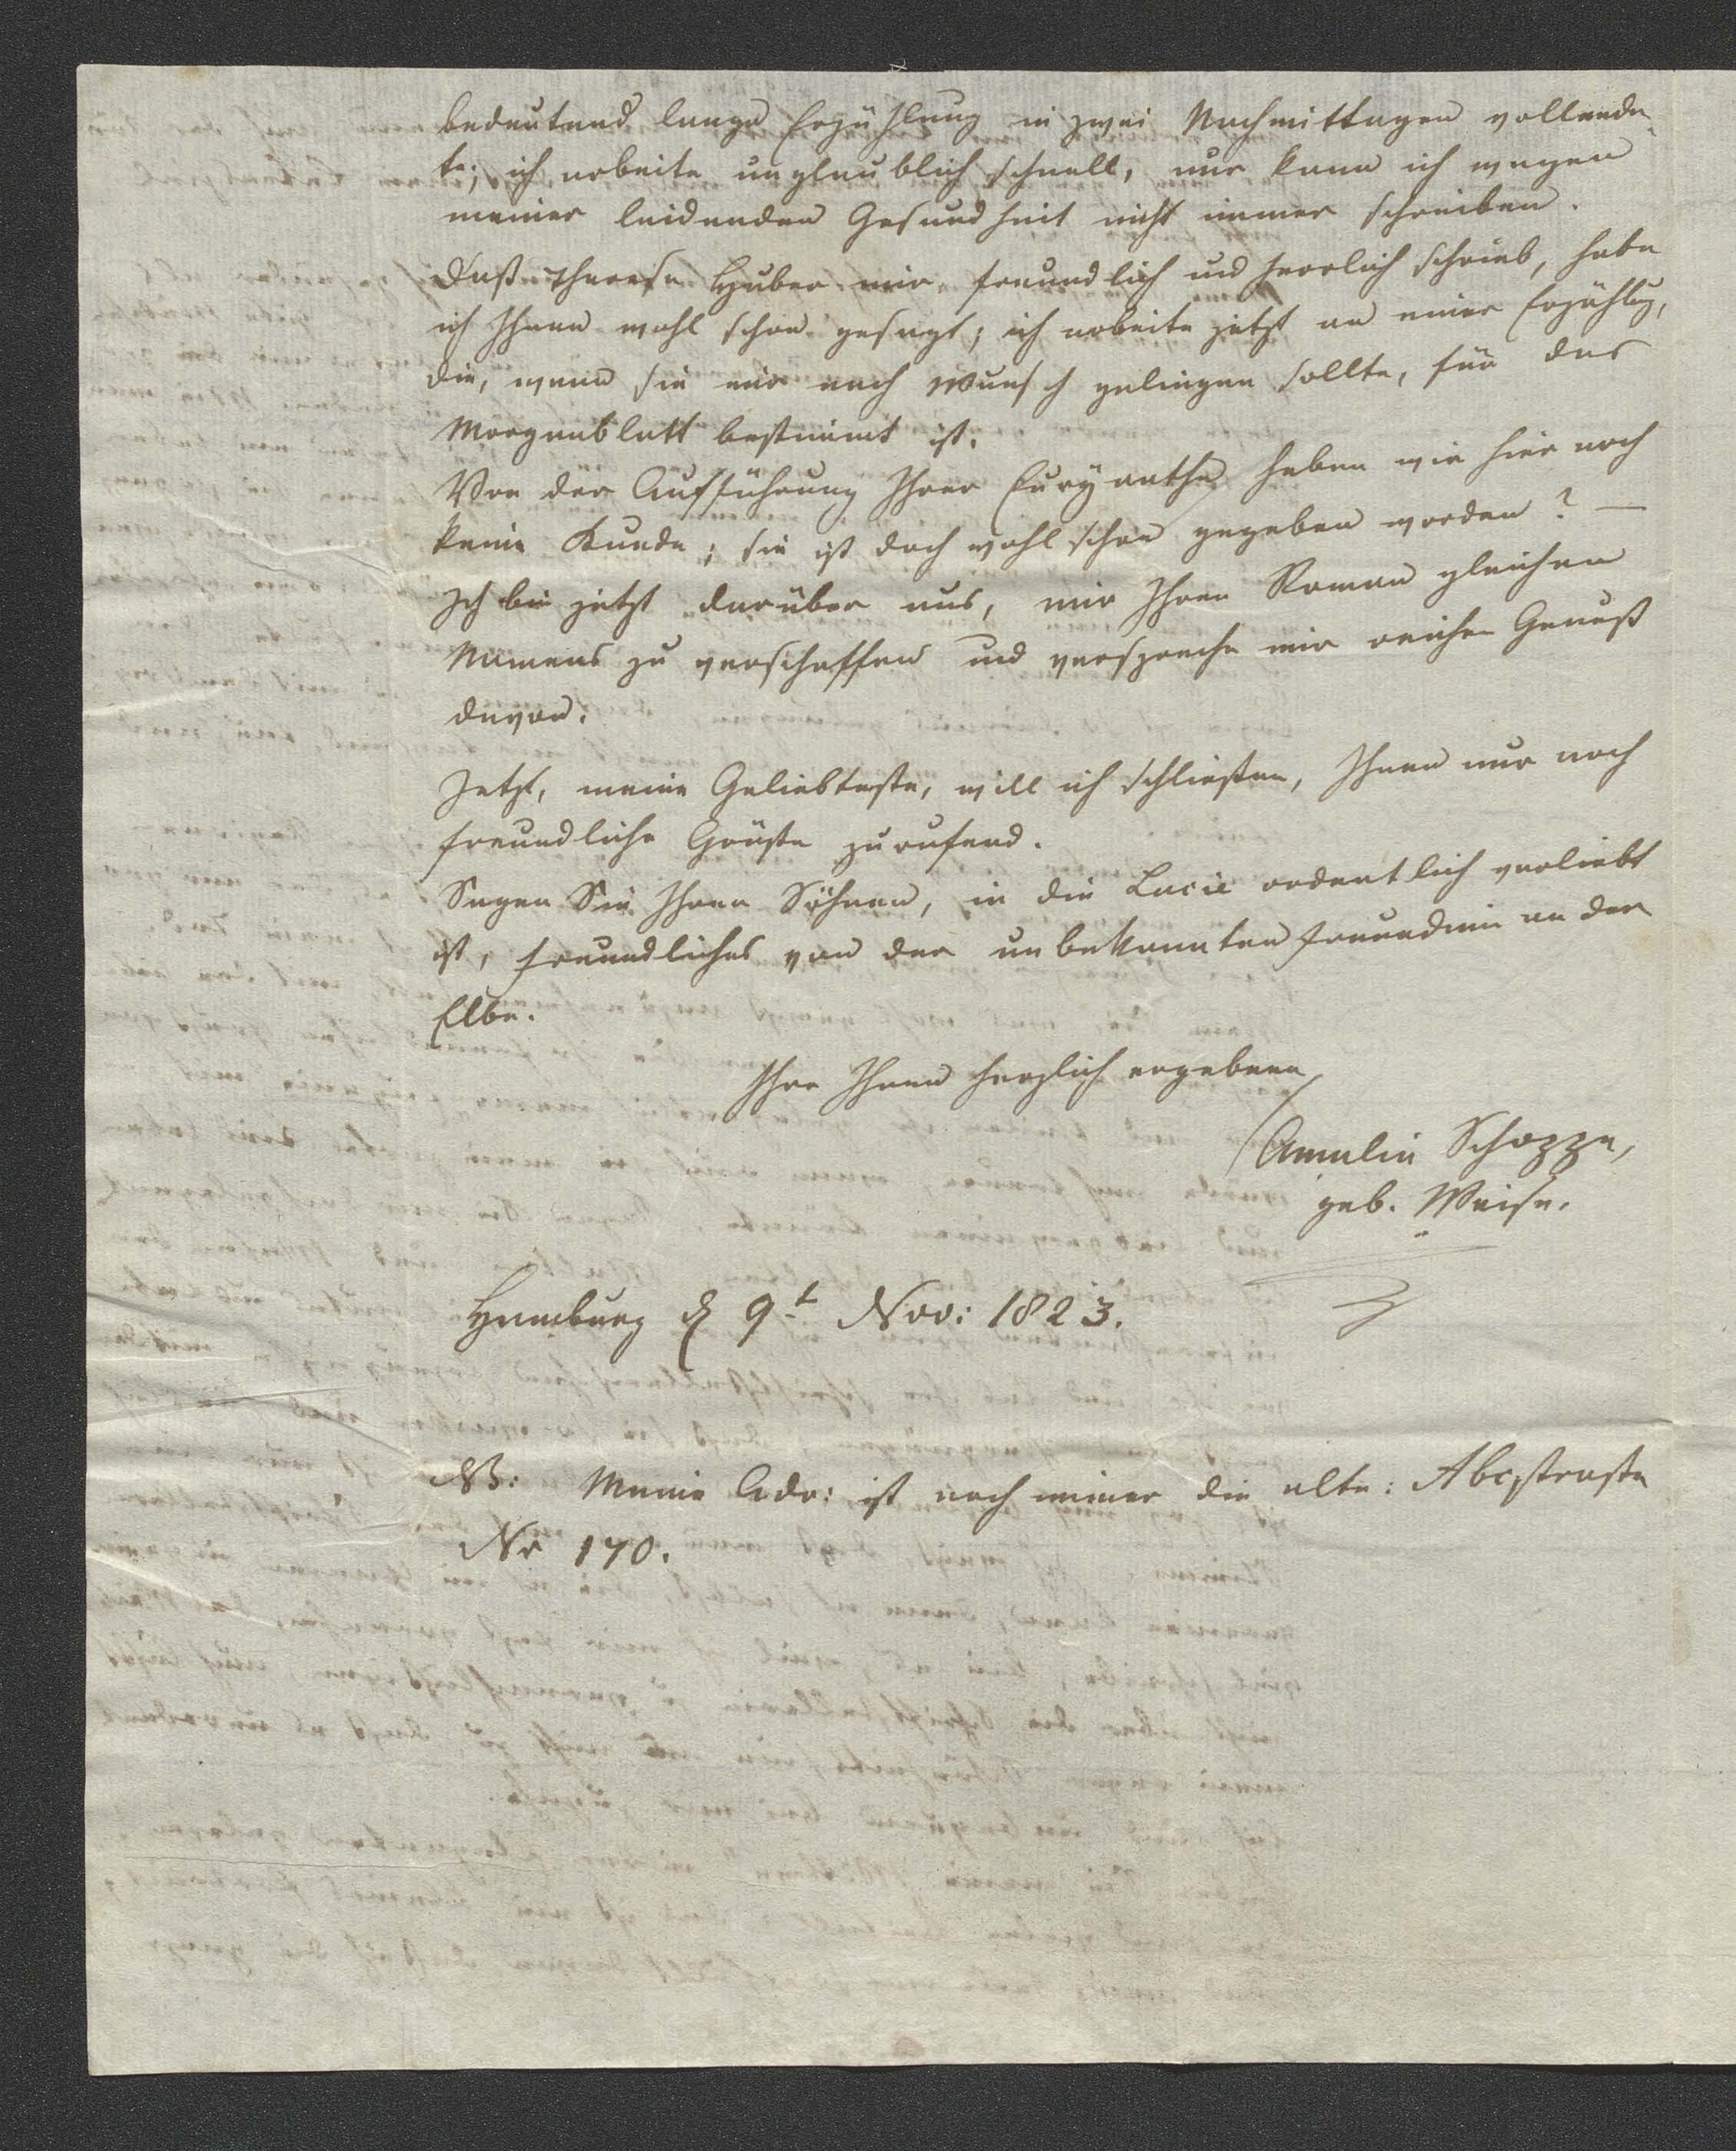 bedeutend lange Erzählung in zwei Nachmittagen vollende-
te; ich arbeite unglaublich schnell, nur kann ich wegen
meiner leidenden Gesundheit nicht immer schreiben.
Daß Therese Huber mir freundlich und herrlich schrieb, habe
ich Ihnen wohl schon gesagt; ich arbeite jetzt an einer Erzählg,
die, wenn sie mir nach Wunsch gelingen sollte, für das
Morgenblatt bestimmt ist.
Von der Aufführung Ihrer Euryanthe haben wir hier noch
keine Kunde; sie ist doch wohl schon gegeben worden? —
Ich bin jetzt darüber aus, mir Ihren Roman gleichen
Namens zu verschaffen und verspreche mir reichen Genuß
davon.
Jetzt, meine Geliebteste, will ich schließen, Ihnen nur noch
freundliche Grüße zurufend.
Sagen Sie Ihren Söhnen, in die Lucie ordentlich verliebt
ist, freundliches von der unbekannten Freundinn an der
Elbe.
Ihre Ihnen herzlich ergebene
Amalia Schoppe,
geb. Weise.
Hamburg d 9t Nov: 1823.
NB: Meine Adr: ist noch immer die alte: Abcstraße
Nr 170.